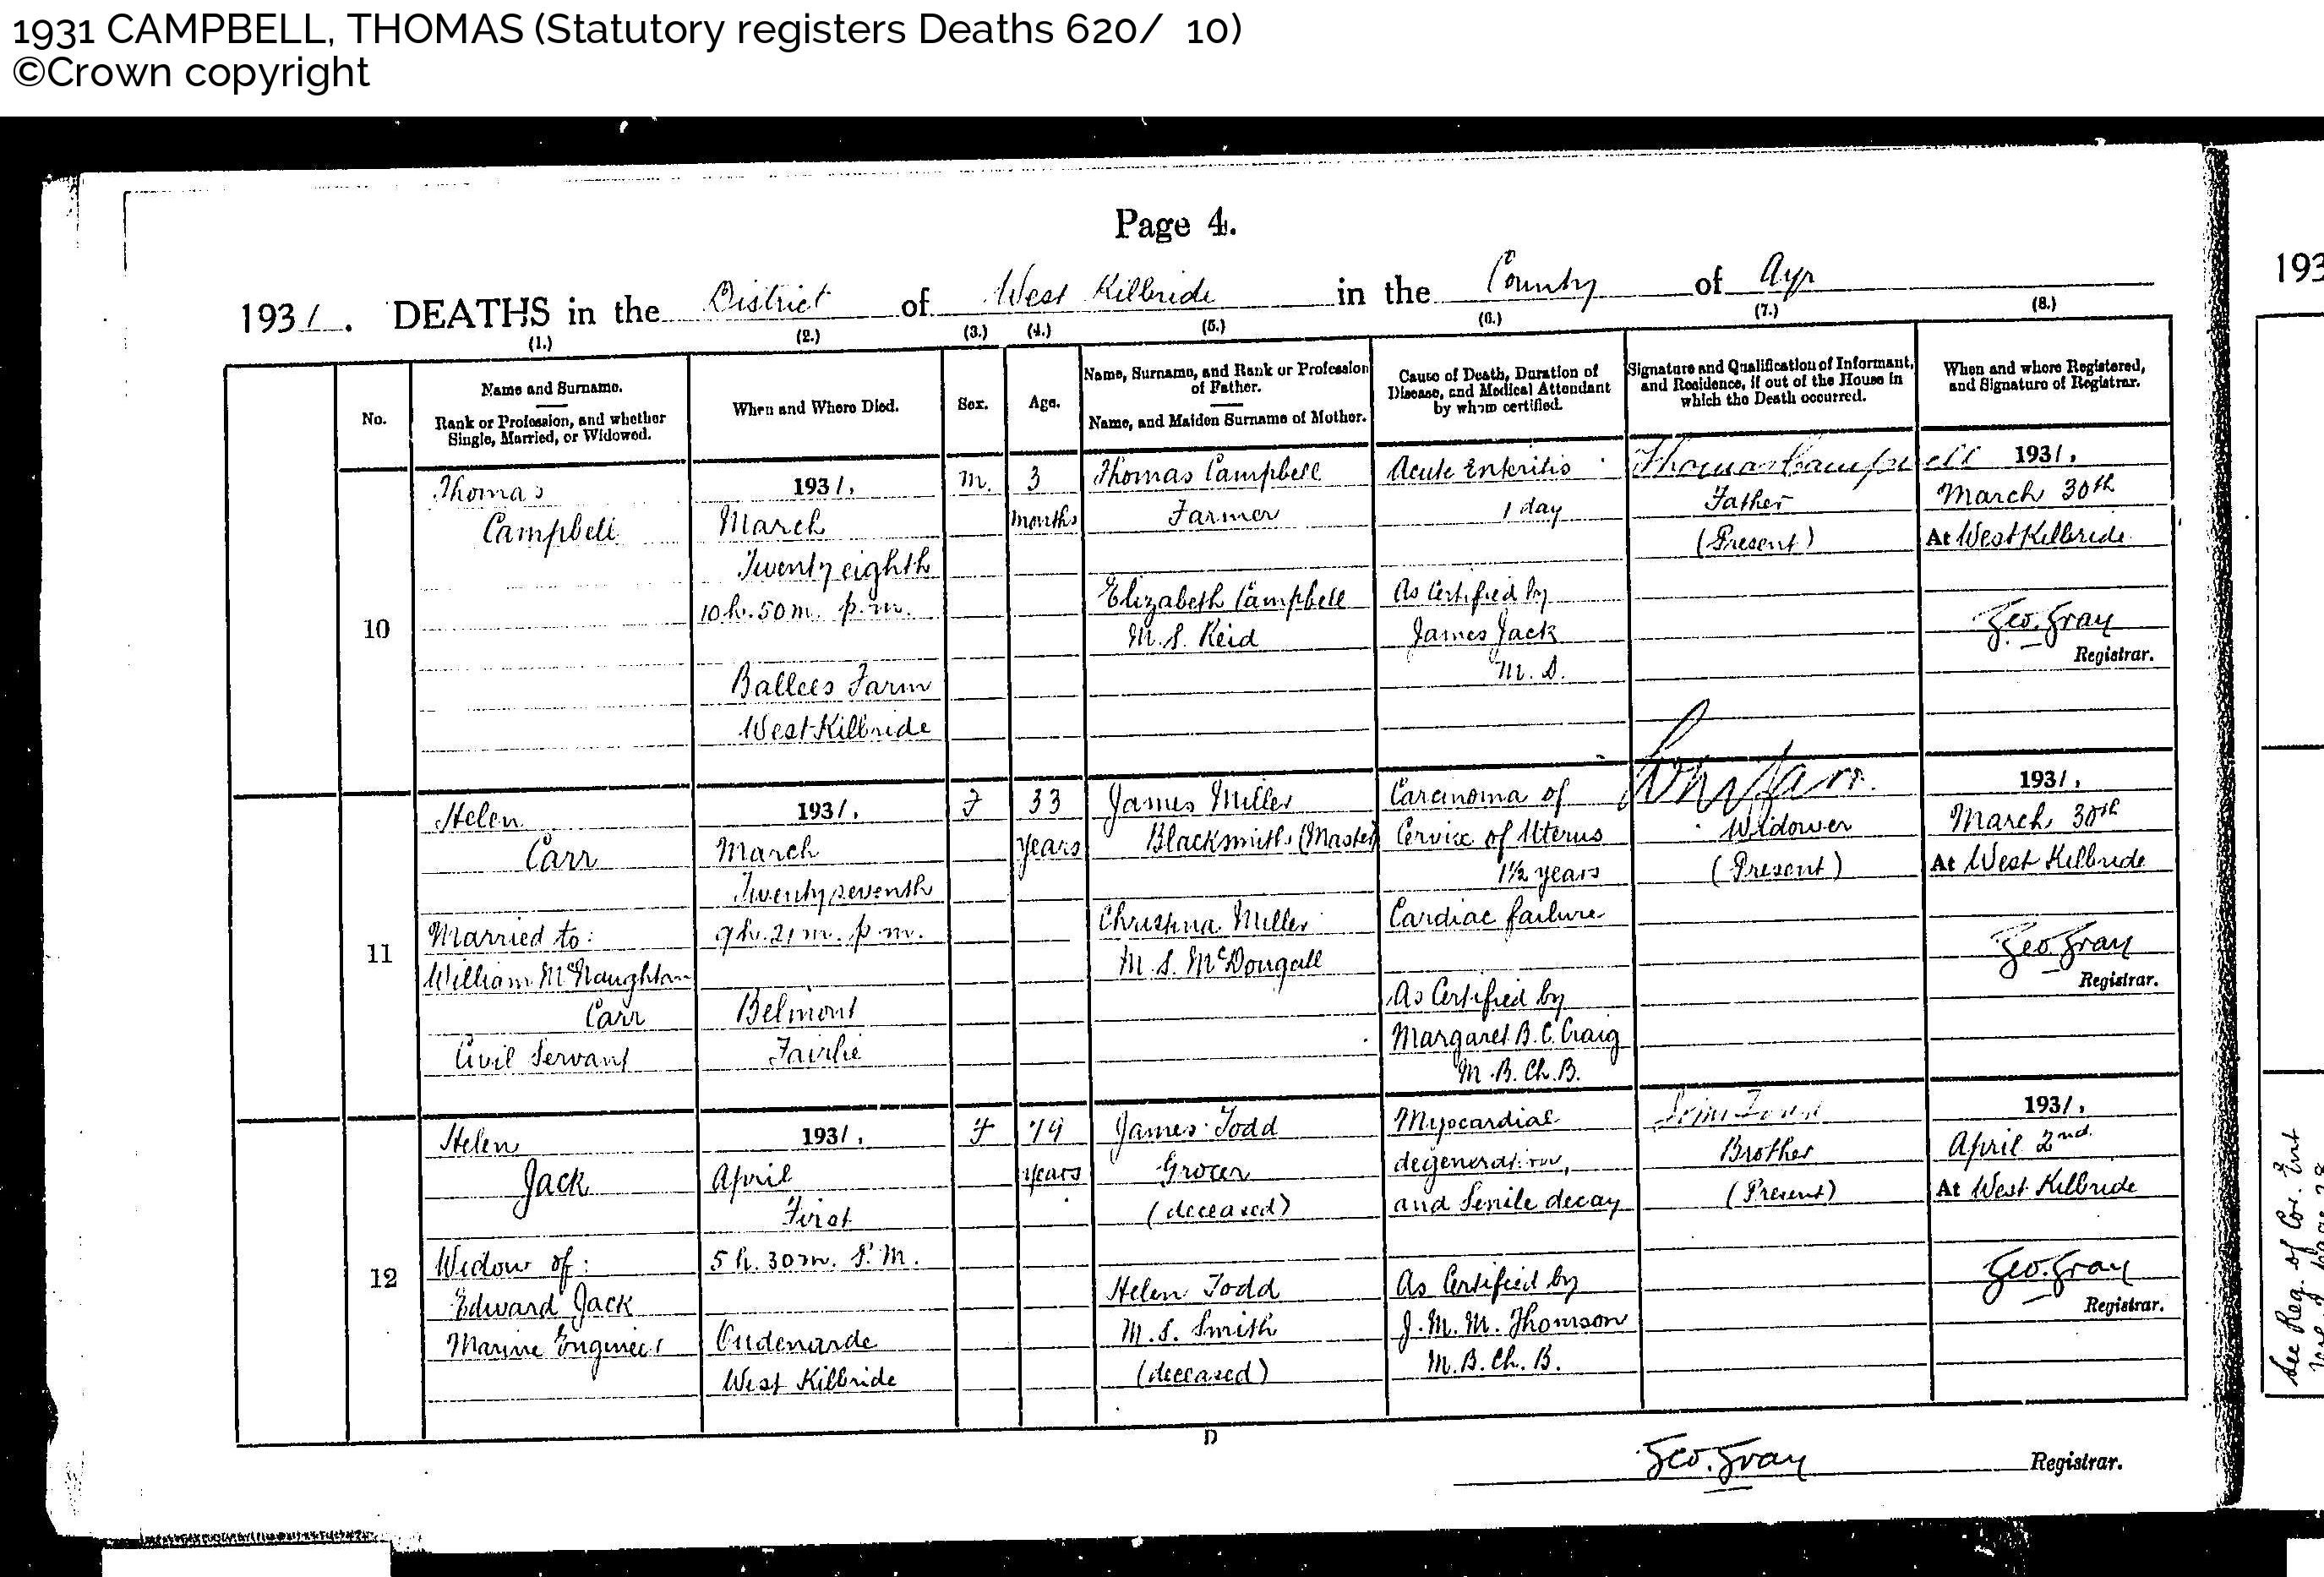 1931 CAMPBELL, THOMAS (Statutory registers Deaths 620/ 10)
©Crown copyright
Page 4.
1931. DEATHS in the District of West Kilbride in the County of Ayr
193
(1.) (2.) (3.) (4.) (5.) (6.) (7.) (8.)
No.
Name and Surname.
Rank or Profession, and whether
Single, Married, or Widowed.
When and Where Died.
Sex.
Age.
Name, Surname, and Rank or Profession
of Father.
Name, and Maiden Surname of Mother.
Cause of Death, Duration of
Disease, and Medical Attendant
by whom certified.
Signature and Qualification of Informant,
and Residence, if out of the House in
which the Death occurred.
When and where Registered,
and Signature of Registrar.
10
Thomas
Campbell
1931,
March
Twenty eighth
10 h. 50 m. p.m.
Ballees Farm
West Kilbride
M.
3
months
Thomas Campbell
Farmer
Elizabeth Campbell
M.S. Reid
Acute Enteritis
1 day
As Certified by
James Jack
Thomas Campbell
Father
(Present)
1931,
March 30th
At West Kilbride
Geo. Gray
Registrar.
11
Helen
Carr
Married to:
William McNaughton
Carr
Civil Servant
1931,
March
Twenty seventh
9 h. 21 m. p.m.
Belmont
Fairlie
F
33
years
James Miller
Blacksmith (Master)
Christina Miller
M.S. McDougall
Carcinoma of
Cervix of Uterus
1½ years
Cardiac failure
As Certified by
Margaret B. C. Craig
M.B. Ch.B.
Widower
(Present)
1931,
March 30th
At West Kilbride
Geo. Gray
Registrar.
12
Helen
Jack
Widow of:
Edward Jack
Marine Engineer
1931,
April
First
5 h. 30 m. P.M.
Oudenarde
West Kilbride
F
79
years
James Todd
Grocer
(deceased)
Helen Todd
M.S. Smith
(deceased)
Myocardial
degeneration,
and Senile decay
As Certified by
J. M. M. Thomson
M.B. Ch. B.
Brother
(Present)
1931,
April 2nd
At West Kilbride
Geo. Gray
Registrar.
D
Geo. Gray Registrar.
See Reg. of Cor. Ent